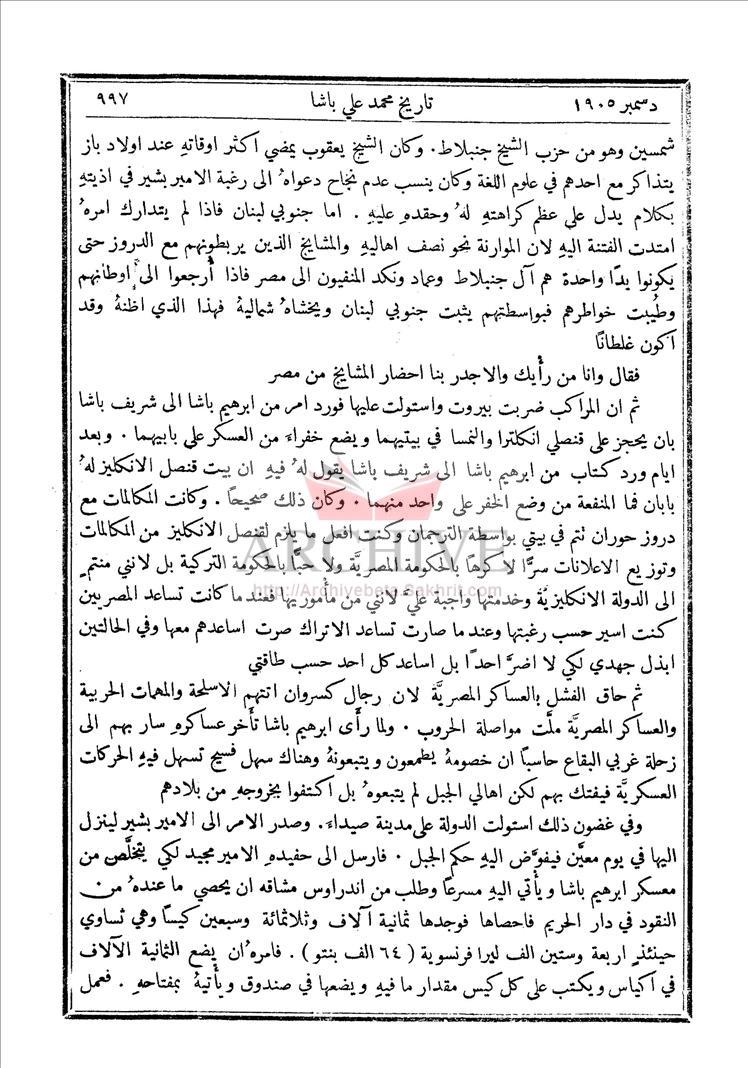 دسمبر ١٩٠٥ تاريخ محمد علي باشا ٩٩٧
شمسين وهو من حزب الشيخ جنبلاط. وكان الشيخ يعقوب يمضي اكثر اوقاتهِ عند اولاد باز
يتذاكر مع احدهم في علوم اللغة وكان ينسب عدم نجاح دعواهُ الى رغبة الامير بشير في اذيتهِ
بكلام يدل على عظم كراهتهِ لهُ وحقدهِ عليهِ . اما جنوبي لبنان فاذا لم يتدارك امرهُ
امتدت الفتنة اليهِ لان الموارنة نحو نصف اهاليهِ والمشايخ الذين يربطونهم مع الدروز حتى
يكونوا يدًا واحدة هم آل جنبلاط وعماد ونكد المنفيون الى مصر فاذا أُرجعوا الى اوطانهم
وطُيبت خواطرهم فبواسطتهم يثبت جنوبي لبنان ويخشاهُ شماليهُ فهذا الذي اظنهُ وقد
اكون غلطانًا
فقال وانا من رأيك والاجدر بنا احضار المشايخ من مصر
ثم ان المراكب ضربت بيروت واستولت عليها فورد امر من ابرهيم باشا الى شريف باشا
بان يحجز على قنصلي انكلترا والنمسا في بيتيهما و يضع خفراء من العسكر على بابيهما . وبعد
ايام ورد كتاب من ابرهيم باشا الى شريف باشا يقول لهُ فيهِ ان بيت قنصل الانكليز لهُ
بابان فما المنفعة من وضع الخفر على واحد منهما . وكان ذلك صحيحًا . وكانت المكالمات مع
دروز حوران تتم في بيتي بواسطة الترجمان وكنت افعل ما يلزم لقنصل الانكليز من المكالمات
وتوزيع الاعلانات سرًّا لا كرهًا بالحكومة المصريَّة ولا حبًّا بالحكومة التركية بل لانني منتمٍ
الى الدولة الانكليزيَّة وخدمتها واجبة عليَّ لانني من مأموريها فعند ما كانت تساعد المصريين
كنت اسير حسب رغبتها وعند ما صارت تساعد الاتراك صرت اساعدهم معها وفي الحالتين
ابذل جهدي لكي لا اضرَّ احدًا بل اساعد كل احد حسب طاقتي
ثم حاق الفشل بالعساكر المصريَّة لان رجال كسروان اتتهم الاسلحة والمهمات الحربية
والعساكر المصريَّة ملَّت مواصلة الحروب . ولما رأى ابرهيم باشا تأخر عساكرهِ سار بهم الى
زحلة غربي البقاع حاسبًا ان خصومهُ يطمعون و يتبعونهُ وهناك سهل فسيح تسهل فيهِ الحركات
العسكريَّة فيفتك بهم لكن اهالي الجبل لم يتبعوهُ بل اكتفوا بخروجهِ من بلادهم
وفي غضون ذلك استولت الدولة على مدينة صيداء. وصدر الامر الى الامير بشير لينزل
اليها في يوم معيَّن فيفوَّض اليهِ حكم الجبل . فارسل الى حفيدهِ الامير مجيد لكي يتخلَّص من
معسكر ابرهيم باشا و يأتي اليهِ مسرعًا وطلب من اندراوس مشاقه ان يحصي ما عندهُ من
النقود في دار الحريم فاحصاها فوجدها ثمانية آلاف وثلاثمائة وسبعين كيسًا وهي تساوي
حينئذٍ اربعة وستين الف ليرا فرنسوية ( ٦٤ الف بنتو ) . فامرهُ ان يضع الثمانية الآلاف
في اكياس و يكتب على كل كيس مقدار ما فيهِ و يضعها في صندوق و يأتيهُ بمفتاحهِ . فعمل
ARCHIVE
http://Archivebeta.Sakhrit.com